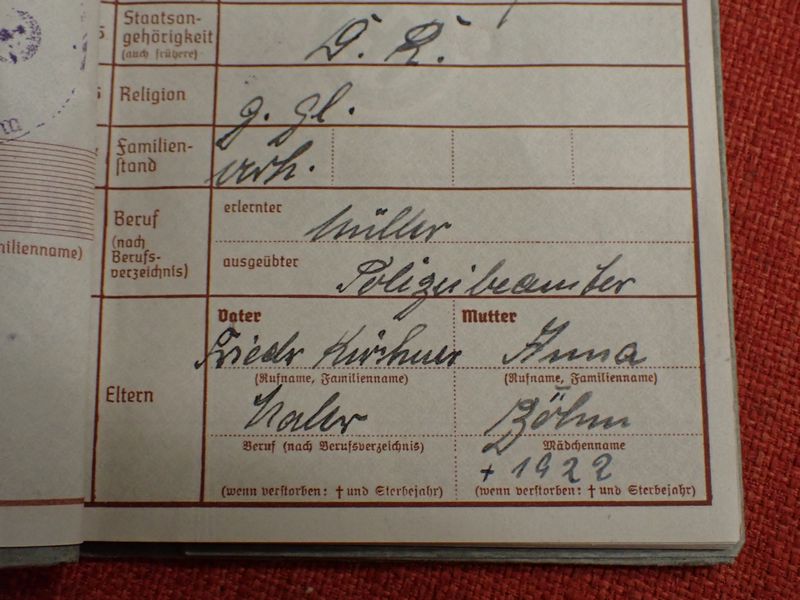 Staatsan-
gehörigkeit
(auch frühere)
D. R.
Religion
g. gl.
Familien-
stand
verh.
Beruf
(nach
Berufs-
verzeichnis)
erlernter
Müller
ausgeübter
Polizeibeamter
Eltern
Vater
Friedr Kirchner
(Rufname, Familienname)
Maler
Beruf (nach Berufsverzeichnis)
(wenn verstorben: † und Sterbejahr)
Mutter
Anna
(Rufname, Familienname)
Böhm
Mädchenname
+ 1922
(wenn verstorben: † und Sterbejahr)
milienname)